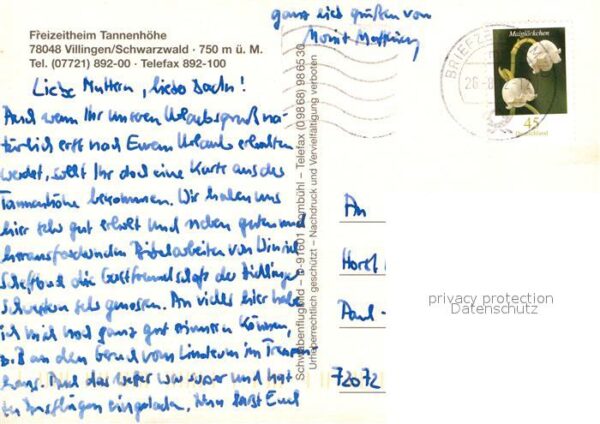 Freizeitheim Tannenhöhe
78048 Villingen/Schwarzwald · 750 m ü. M.
Tel. (07721) 892-00 · Telefax 892-100
ganz lieb grüßen von
Liebe Muttern, liebe
Auch wenn Ihr unseren Urlaubsgruß na-
türlich erst nach Eurem Urlaub erhalten
werdet, sollt Ihr doch eine Karte aus der
Tannenhöhe bekommen. Wir haben uns
hier sehr gut erholt und neben guten und
herausfordernden Bibelarbeiten von
die Gastfreundschaft der
Schwestern sehr genossen. An vieles hier habe
ich mich noch ganz gut erinnern können,
z.B. an den Geruch vom Linoleum im
haus. Auch das Wetter war super und hat
zu Ausflügen eingeladen. Nun laßt Euch
Schwabenflugbild – D-91601 Dombühl – Telefax (09868) 986530
Urheberrechtlich geschützt – Nachdruck und Vervielfältigung verboten
BRIEFZE
26
Maiglöckchen
45
Deutschland
An
Horst
Paul-
72072
privacy protection
Datenschutz